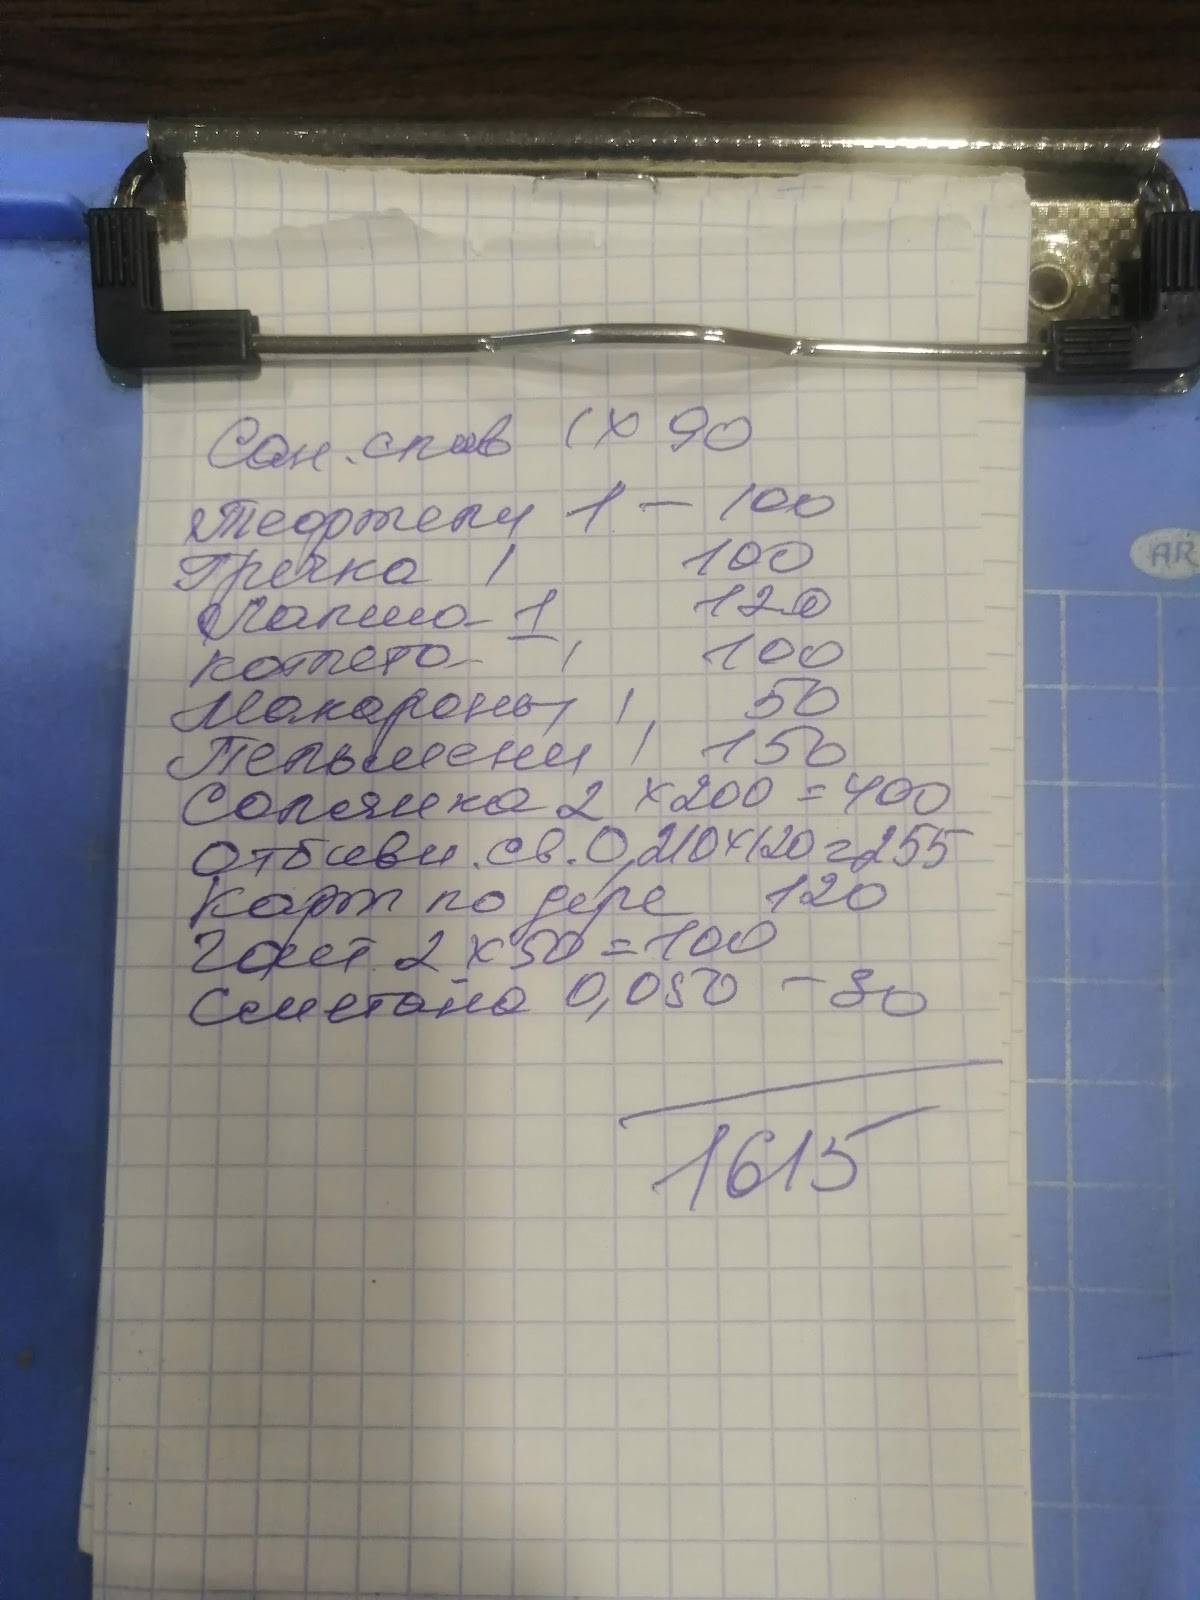 Сал. слив 1 х 90
Тефтели 1 - 100
Гречка 1 100
Лапша 1 120
котлета 1 100
Макароны 1 50
Пельмени 1 150
Солянка 2 х 200 = 400
Отбивн. св. 0,210х120=255
Карт по дере 120
2 х 50 = 100
Сметана 0,050 - 30
1615
AR